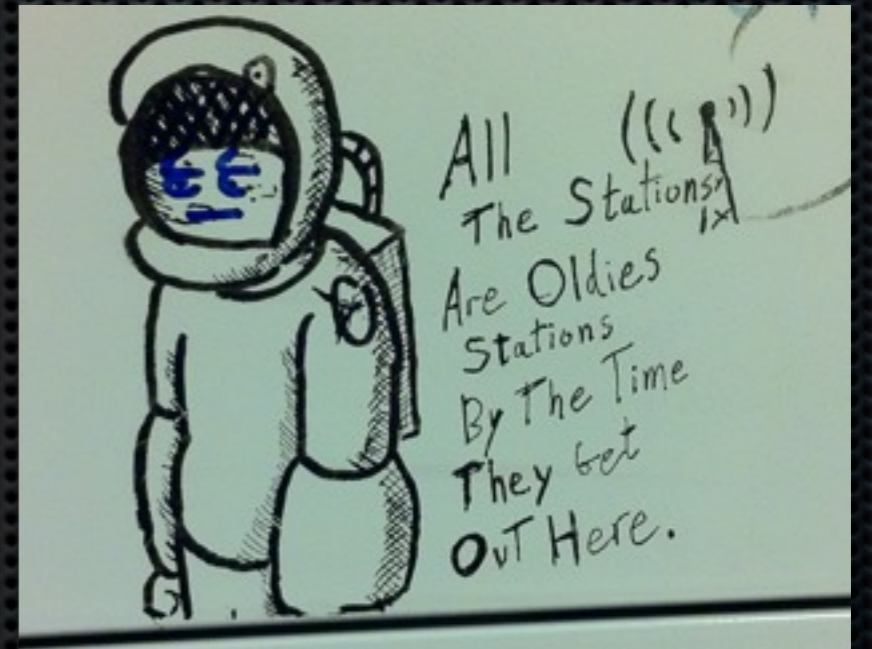 All
The Stations
Are Oldies
Stations
By The Time
They Get
Out Here.